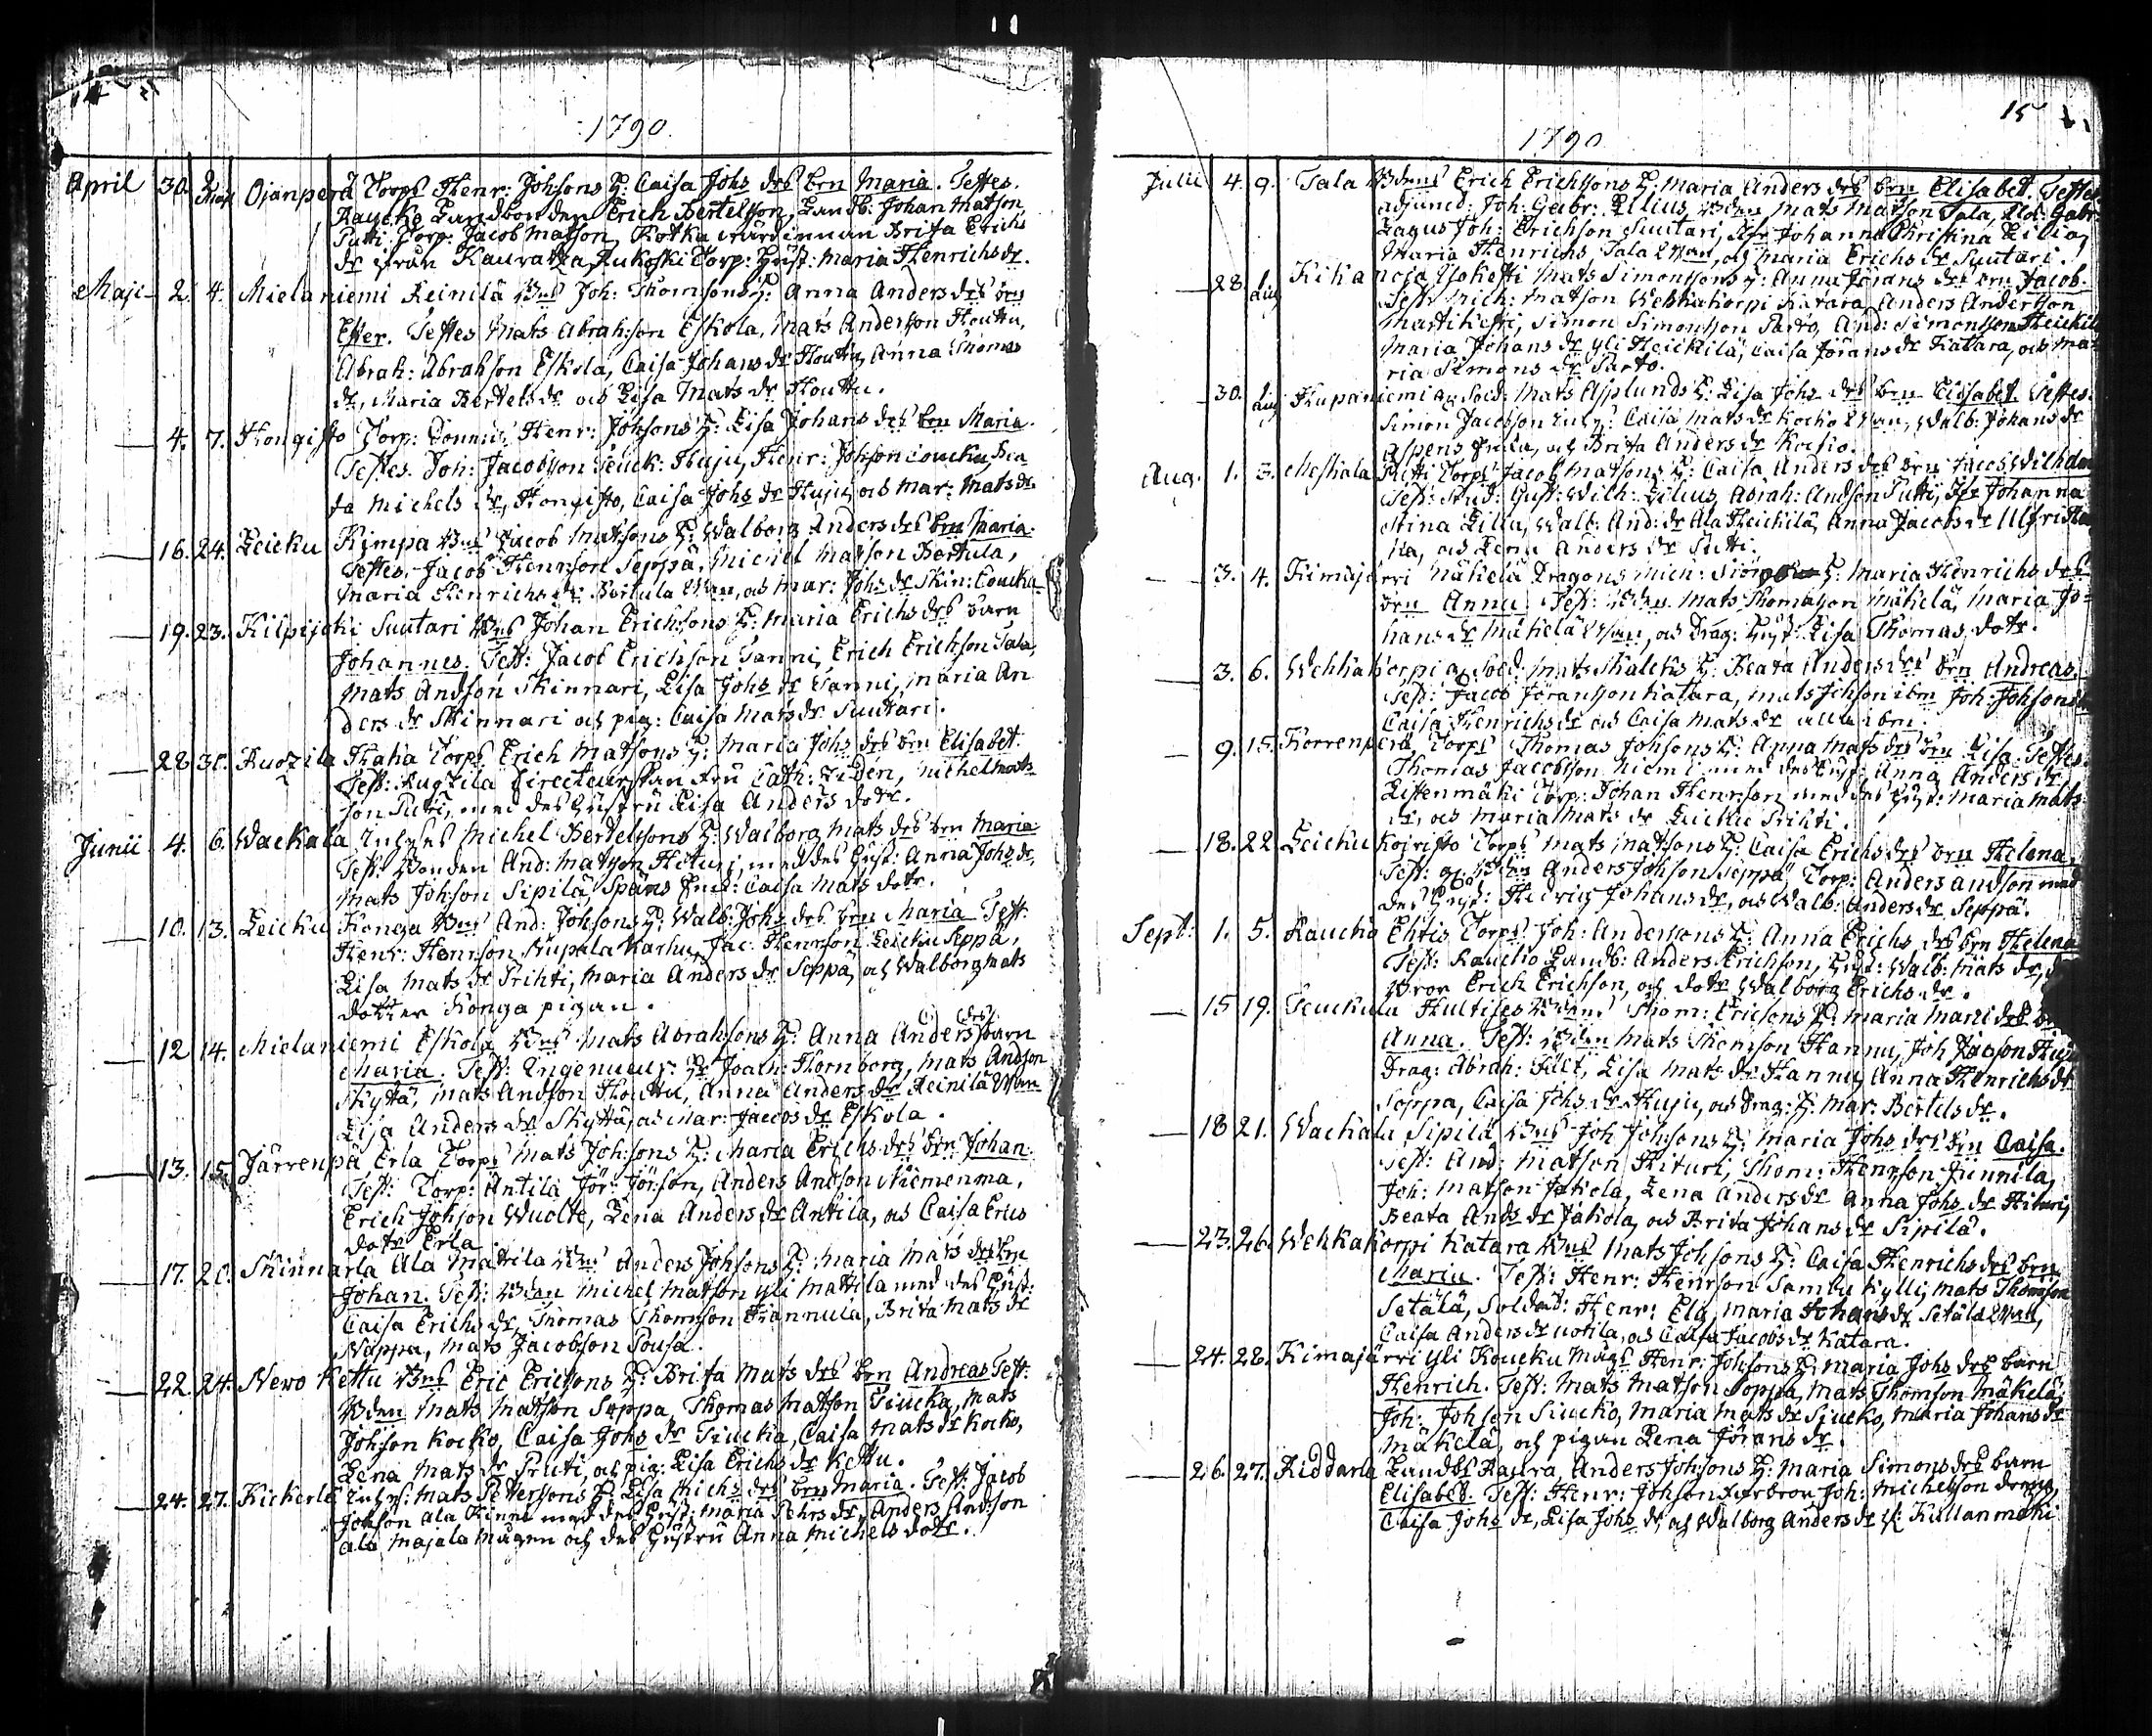 14
1790.
April 30. Maji Ojanperä Torps Henr: Johsons H: Caisa Johs drs brn Maria. Testes.
Raucko Landbonden Erich Bertelsson, Landb: Johan Matson
Putti Torp: Jacob Matson, Kotka värdinnan Brita Erichs
dr från Kauvatza, Rukoski Torp: Hust: Maria Henrichs dr.
Maji 2. 4. Mielaniemi Reinilä Bns Joh: Thomsons H: Anna Anders drs brn
Ester. Testes Mats Abrahson Eskola, Mats Andersson Houttu,
Abrah: Abrahson Eskola, Caisa Johans dr Houttu, Anna Thomas
dr, Maria Bertels dr och Lisa Mats dr Houttu.
— 4. 7. Hongisto Torp: Henr: Johsons H: Lisa Johans drs brn Maria.
Testes. Joh: Jacobsson Huju, Henr: Johson Loucku, Bea
ta Michels dr, Hongisto, Caisa Johs dr Huju och Mar: Mats dr.
— 16. 24. Leicku Kimpa Bns Jacob Matsons H: Walborg Anders drs brn Maria.
Testes. Jacob Henrson Seppä, Michel Matson Bertula,
Maria Henrichs dr Bertula, och Mar: Johs dr Skin: Loucku
— 19. 23. Kilpijoki Suutari Bns Johan Erichsons H: Maria Erichs drs barn
Johannes. Test: Jacob Erichson Tanni, Erich Erichson Tala,
Mats Andson Skinnari, Lisa Johs dr Tanni, Maria An
ders dr Skinnari och pig: Caisa Mats dr Suutari.
— 28 30. Ruozila Haha Torps Erich Matsons H: Maria Johs drs brn Elisabet.
Test: Rugzila Directeurskan Fru Cath: Liden, Michel Mats
son Putti, med des Hustru Lisa Anders dotr.
Junii 4. 6. Wackala Inhyses Michel Bertelssons H: Walborg Mats drs brn Maria.
Test: Bonden And: Matson Hituri, med des Hust: Anna Johs dr,
Mats Johson Sipilä Späns Enk: Caisa Mats dotr.
— 10. 13. Leicku Konga Bns And: Johsons H: Walb: Johs drs brn Maria Test:
Henr: Henrson Rupala Karhu, Jac: Henrson Leicku Seppä,
Lisa Mats dr Prihti, Maria Anders dr Seppä, och Walborg Mats
dotter Konga pigan.
— 12 14. Mielaniemi Eskola Bns Mats Abrahsons H: Anna Anders (drs) barn
Maria. Test: Ingenieur: Hr Joach: Thornborg, Mats Andson
Skyttä, Mats Andson Houttu, Anna Anders dr Reinilä
Lisa Anders dr Skyttä, och Mar: Jacobs dr Eskola.
— 13. 15. Järrenpä Erla Torps Mats Johsons H: Maria Erichs drs brn Johan.
Test: Torp: Antila Jör: Jörson, Anders Andson Niemenma,
Erich Johson Wuolte, Lena Anders dr Antila, och Caisa Erics
dotr Erla
— 17. 20. Skinnarla Ala Mattila Bns Anders Johsons H: Maria Mats drs brn
Johan. Test: Bden Michel Matson Yli Mattila med des Hust:
Caisa Erichs dr, Thomas Thomson Hannula, Brita Mats dr
Näppa, Mats Jacobson Sousa.
— 22. 24. Newo Kettu Bns Eric Ericsons H: Brita Mats drs brn Andreas Test:
Bden Mats Matson Soppa, Thomas Matson Siucka, Mats
Johson Kocko, Caisa Johs dr Siucka, Caisa Mats dr Kocko,
Lena Mats dr Pruti, och pig: Lisa Erichs dr Kettu.
— 24. 27. Kickerlä Inhys: Mats Petersons H: Lisa Michs drs brn Maria. Test: Jacob
Johson Ala Kinni med des Hust: Maria Pehrs dr, Anders Andson
ala Majala Mågen och des Hustru Anna Michels dotr.
15
1790
Julii 4. 9. Tala Bdens Erich Erichssons H: Maria Anders drs brn Elisabet. Testes.
adjunct: Joh: Gabr: Lilius, Bden Mats Matson Tala, Gabr:
Lagus Joh: Erichson Suutari, Johanna Christina Lilia,
Maria Henrichs, Tala, och Maria Erichs dr Suutari.
— 28. Aug Kikanoja Mats Simonssons H: Anna Jörans drs brn Jacob.
Test: Mich: Matson Wehkakorpi Katara, Anders Andersson
Martikesti, Simon Simonsson Parto, And: Simonsson Heickilä
Maria Johans dr Yli Heickilä, Caisa Jörans dr Katara, och Ma
ria Simons dr Parto.
— 30. Aug Hupaniemi Sold: Mats Asplunds H: Lisa Johs drs brn Elisabet. Testes.
Simon Jacobson Caisa Mats dr Kocko, Walb: Johans dr
Aspens Enka, och Brita Anders dr Kocko.
Aug. 1. 3. Meskala Putti Torps Jacob Matsons H: Caisa Anders drs brn Jacob Wilh
Test: Stud: Gust: Wilh: Lilius, Abrah: Andson Putti, Johanna
Stina Lilia, Walb: And: dr Ala Heickilä, Anna Jacobs dr
och Lena Anders dr Putti.
— 3. 4. Kimajärri Mäkelä Dragons Mich: H: Maria Henrichs drs
brn Anna. Test: Bden Mats Thomasson Mäkelä, Maria Jo
hans dr Mäkelä, och Drag: Hust: Lisa Thomas dotr.
— 3. 6. Wehkakorpi Sold: Mats Skalcks H: Beata Anders drs brn Andreas.
Test: Jacob Jöransson Katara, Mats Johson ibm Joh: Johson
Caisa Henrichs dr och Caisa Mats dr alla ibm.
— 9. 15. Korrenperä Torps Thomas Johsons H: Anna Mats drs brn Lisa. Testes:
Thomas Jacobsson Niemi med des Hust: Anna Anders dr,
Listenmäki Torp: Johan Henrson med des Hust: Maria Mats
dr, och Maria Mats dr Prihti.
— 18. 22 Leicku Koiristo Torps Mats Matsons H: Caisa Erichs drs brn Helena.
Test: Bden Anders Johson Seppä, Torp: Anders Andson med
des Hust: Hedvig Johans dr, och Walb: Anders dr Seppä.
Sept: 1. 5. Raucko Ehtis Torps Joh: Anderssons H: Anna Erichs drs brn Helena
Test: Raucko Landb: Anders Erichson, Hust: Walb: Mats dr,
Bror Erich Erichson, och dotr Walborg Erichs dr.
— 15 19. Teuckula Hultilas Bdens Thom: Ericsons H: Maria Marti drs
Anna. Test: Bden Mats Thomson Hannu, Joh Jacson Huju
Drag: Abrah: Fält, Lisa Mats dr Hannu, Anna Henrichs dr
Soppa, Caisa Johs dr Huju, och Drag: H: Mar: Bertils dr.
— 18 21. Wackala Sipilä Bns Joh Johsons H: Maria Johs drs brn Caisa.
Test: And: Matson Hituri, Thom: Henrson Junnila,
Joh: Matson Jakola, Lena Anders dr Anna Johs dr Hituri,
Beata Ands dr Jakola, och Brita Johans dr Sipilä.
— 23. 26. Wehkakorpi Katara Bns Mats Johsons H: Caisa Henrichs drs brn
Maria. Test: Henr: Henrson Sambu Kylli, Mats Thomson
Setälä, Soldat: Henr: Elg, Maria Johans dr Setälä,
Caisa Anders dr Uotila, och Caisa Jacobs dr Katara.
— 24. 28. Kimajärri Yli Koucku Mågs Henr: Johsons H: Maria Johs drs barn
Henrich. Test: Mats Matson Soppa, Mats Thomson Mäkelä,
Joh: Johson Siucko, Maria Mats dr Siucko, Maria Johans dr
Mäkelä, och pigan Lena Jörans dr.
— 26. 27. Riddarla Landbs Kaura Anders Johsons H: Maria Simons drs barn
Elisabet. Test: Henr: Johson, Joh: Michelsson dreng,
Caisa Johs dr, Lisa Johs dr, och Walborg Anders dr Kullanmäki